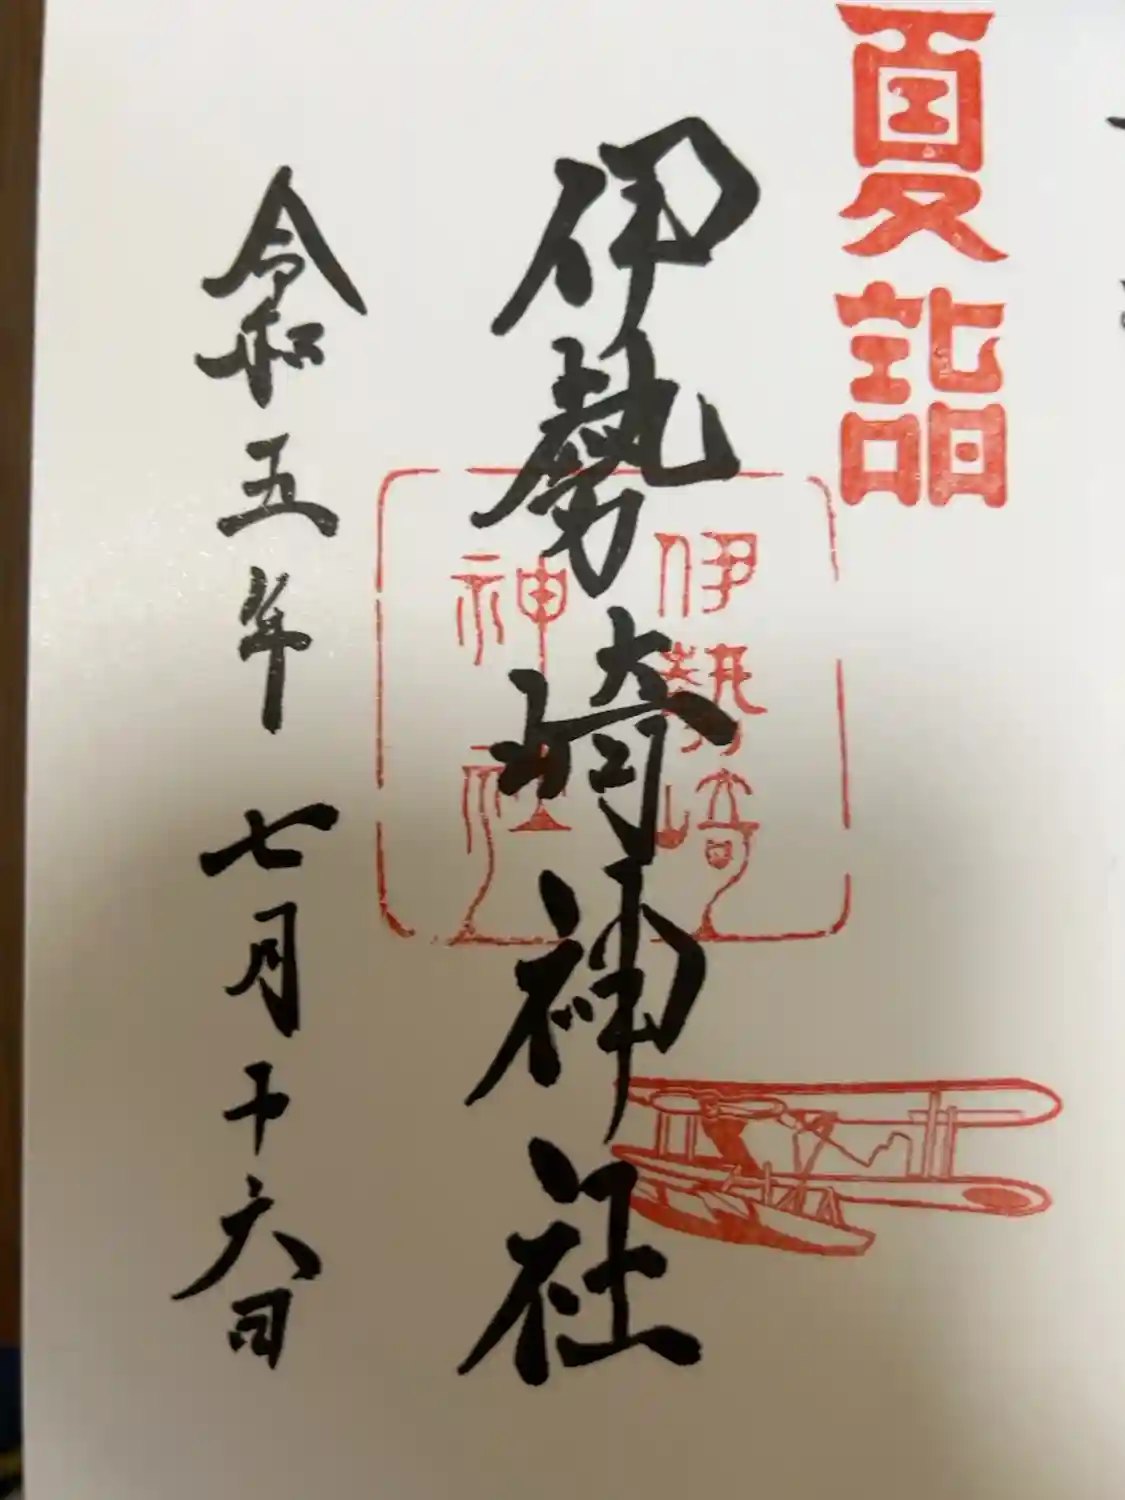 夏詣
伊勢崎神社
伊勢崎
神社
令和五年七月十六日